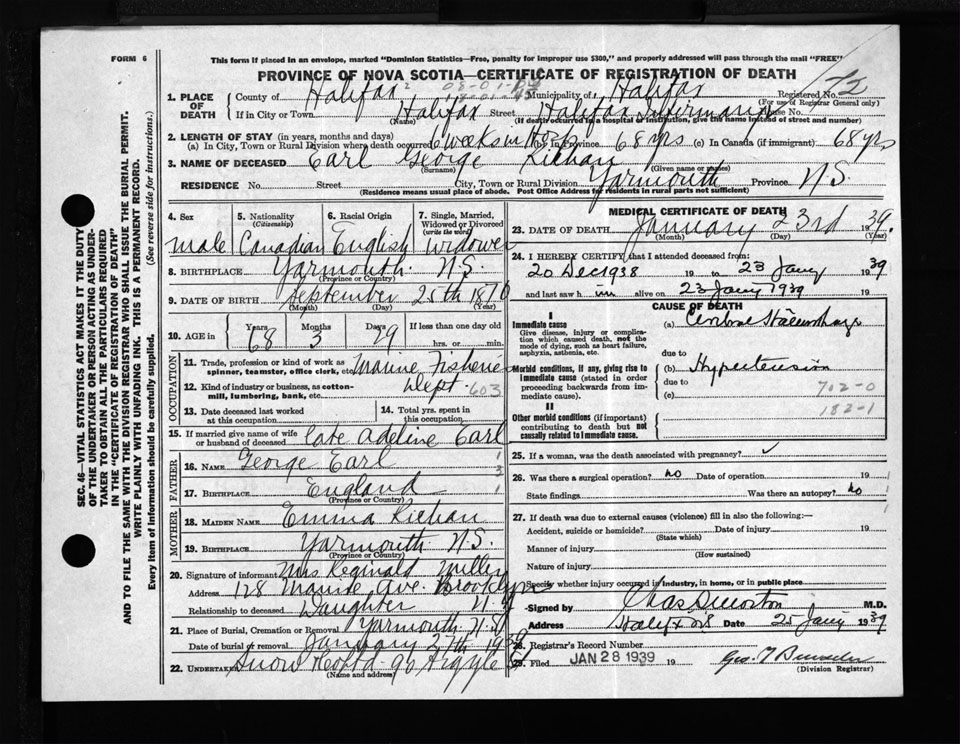 FORM 6
This form if placed in an envelope, marked "Dominion Statistics—Free, penalty for improper use $300," and properly addressed will pass through the mail "FREE"
PROVINCE OF NOVA SCOTIA—CERTIFICATE OF REGISTRATION OF DEATH
Registered No. 72
(For use of Registrar General only)
1. PLACE OF DEATH
County of Halifax Municipality of Halifax
If in City or Town Halifax Street Halifax Infirmary House No.
(Name) (If death occurred in a hospital or institution, give the name instead of street and number)
2. LENGTH OF STAY (in years, months and days)
(a) In City, Town or Rural Division where death occurred 6 weeks in Hosp. (b) In Province 68 yrs (c) In Canada (if immigrant) 68 yrs
3. NAME OF DECEASED Earl George Richan
(Surname) (Given name or names)
RESIDENCE No. Street City, Town or Rural Division Yarmouth Province N.S.
(Residence means usual place of abode. Post Office Address for residents in rural parts not sufficient)
4. Sex male
5. Nationality (Citizenship) Canadian
6. Racial Origin English
7. Single, Married, Widowed or Divorced (write the word) widower
8. BIRTHPLACE Yarmouth N.S.
(Province or Country)
9. DATE OF BIRTH September 25th 1870
(Month) (Day) (Year)
10. AGE in Years 68 Months 3 Days 29 If less than one day old hrs. or min.
OCCUPATION
11. Trade, profession or kind of work as spinner, teamster, office clerk, etc. Marine Fisherie
12. Kind of industry or business, as cotton-mill, lumbering, bank, etc. Dept 603
13. Date deceased last worked at this occupation
14. Total yrs. spent in this occupation
15. If married give name of wife or husband of deceased late Adeline Earl
FATHER
16. NAME George Earl
17. BIRTHPLACE England
(Province or Country)
MOTHER
18. MAIDEN NAME Emma Richan
19. BIRTHPLACE Yarmouth N.S.
(Province or Country)
20. Signature of informant Mrs Reginald Miller
Address 128 Marine Ave. Brooklyn N.Y
Relationship to deceased Daughter
21. Place of Burial, Cremation or Removal Yarmouth N.S.
Date of burial or removal January 27th 1939
22. UNDERTAKER Snow 90 Argyle
(Name and address)
MEDICAL CERTIFICATE OF DEATH
23. DATE OF DEATH January 23rd 1939.
(Month) (Day) (Year)
24. I HEREBY CERTIFY that I attended deceased from:
20 Dec 1938 19 to 23 Jany 1939
and last saw h im alive on 23 Jany 1939
CAUSE OF DEATH
I
Immediate cause
Give disease, injury or complication which caused death, not the mode of dying, such as heart failure, asphyxia, asthenia, etc.
(a) Cerebral Haemorrhage
due to
Morbid conditions, if any, giving rise to immediate cause (stated in order proceeding backwards from immediate cause).
(b) Hypertension
due to
(c) 702-0
II
182-1
Other morbid conditions (if important) contributing to death but not causally related to immediate cause.
25. If a woman, was the death associated with pregnancy?
26. Was there a surgical operation? no Date of operation 19
State findings Was there an autopsy? no
27. If death was due to external causes (violence) fill in also the following:
Accident, suicide or homicide? Date of injury 19
(State which)
Manner of injury
(How sustained)
Nature of injury
Specify whether injury occurred in industry, in home, or in public place
Signed by Chas S Morton M.D.
Address Halifax N S Date 25 Jany 1939
28. Registrar's Record Number
29. Filed JAN 28 1939 19
(Division Registrar)
SEC. 46—VITAL STATISTICS ACT MAKES IT THE DUTY
OF THE UNDERTAKER OR PERSON ACTING AS UNDER-
TAKER TO OBTAIN ALL THE PARTICULARS REQUIRED
IN THE "CERTIFICATE OF REGISTRATION OF DEATH"
AND TO FILE THE SAME WITH THE DIVISION REGISTRAR WHO SHALL ISSUE THE BURIAL PERMIT.
WRITE PLAINLY WITH UNFADING INK. THIS IS A PERMANENT RECORD.
Every item of information should be carefully supplied. (See reverse side for instructions.)